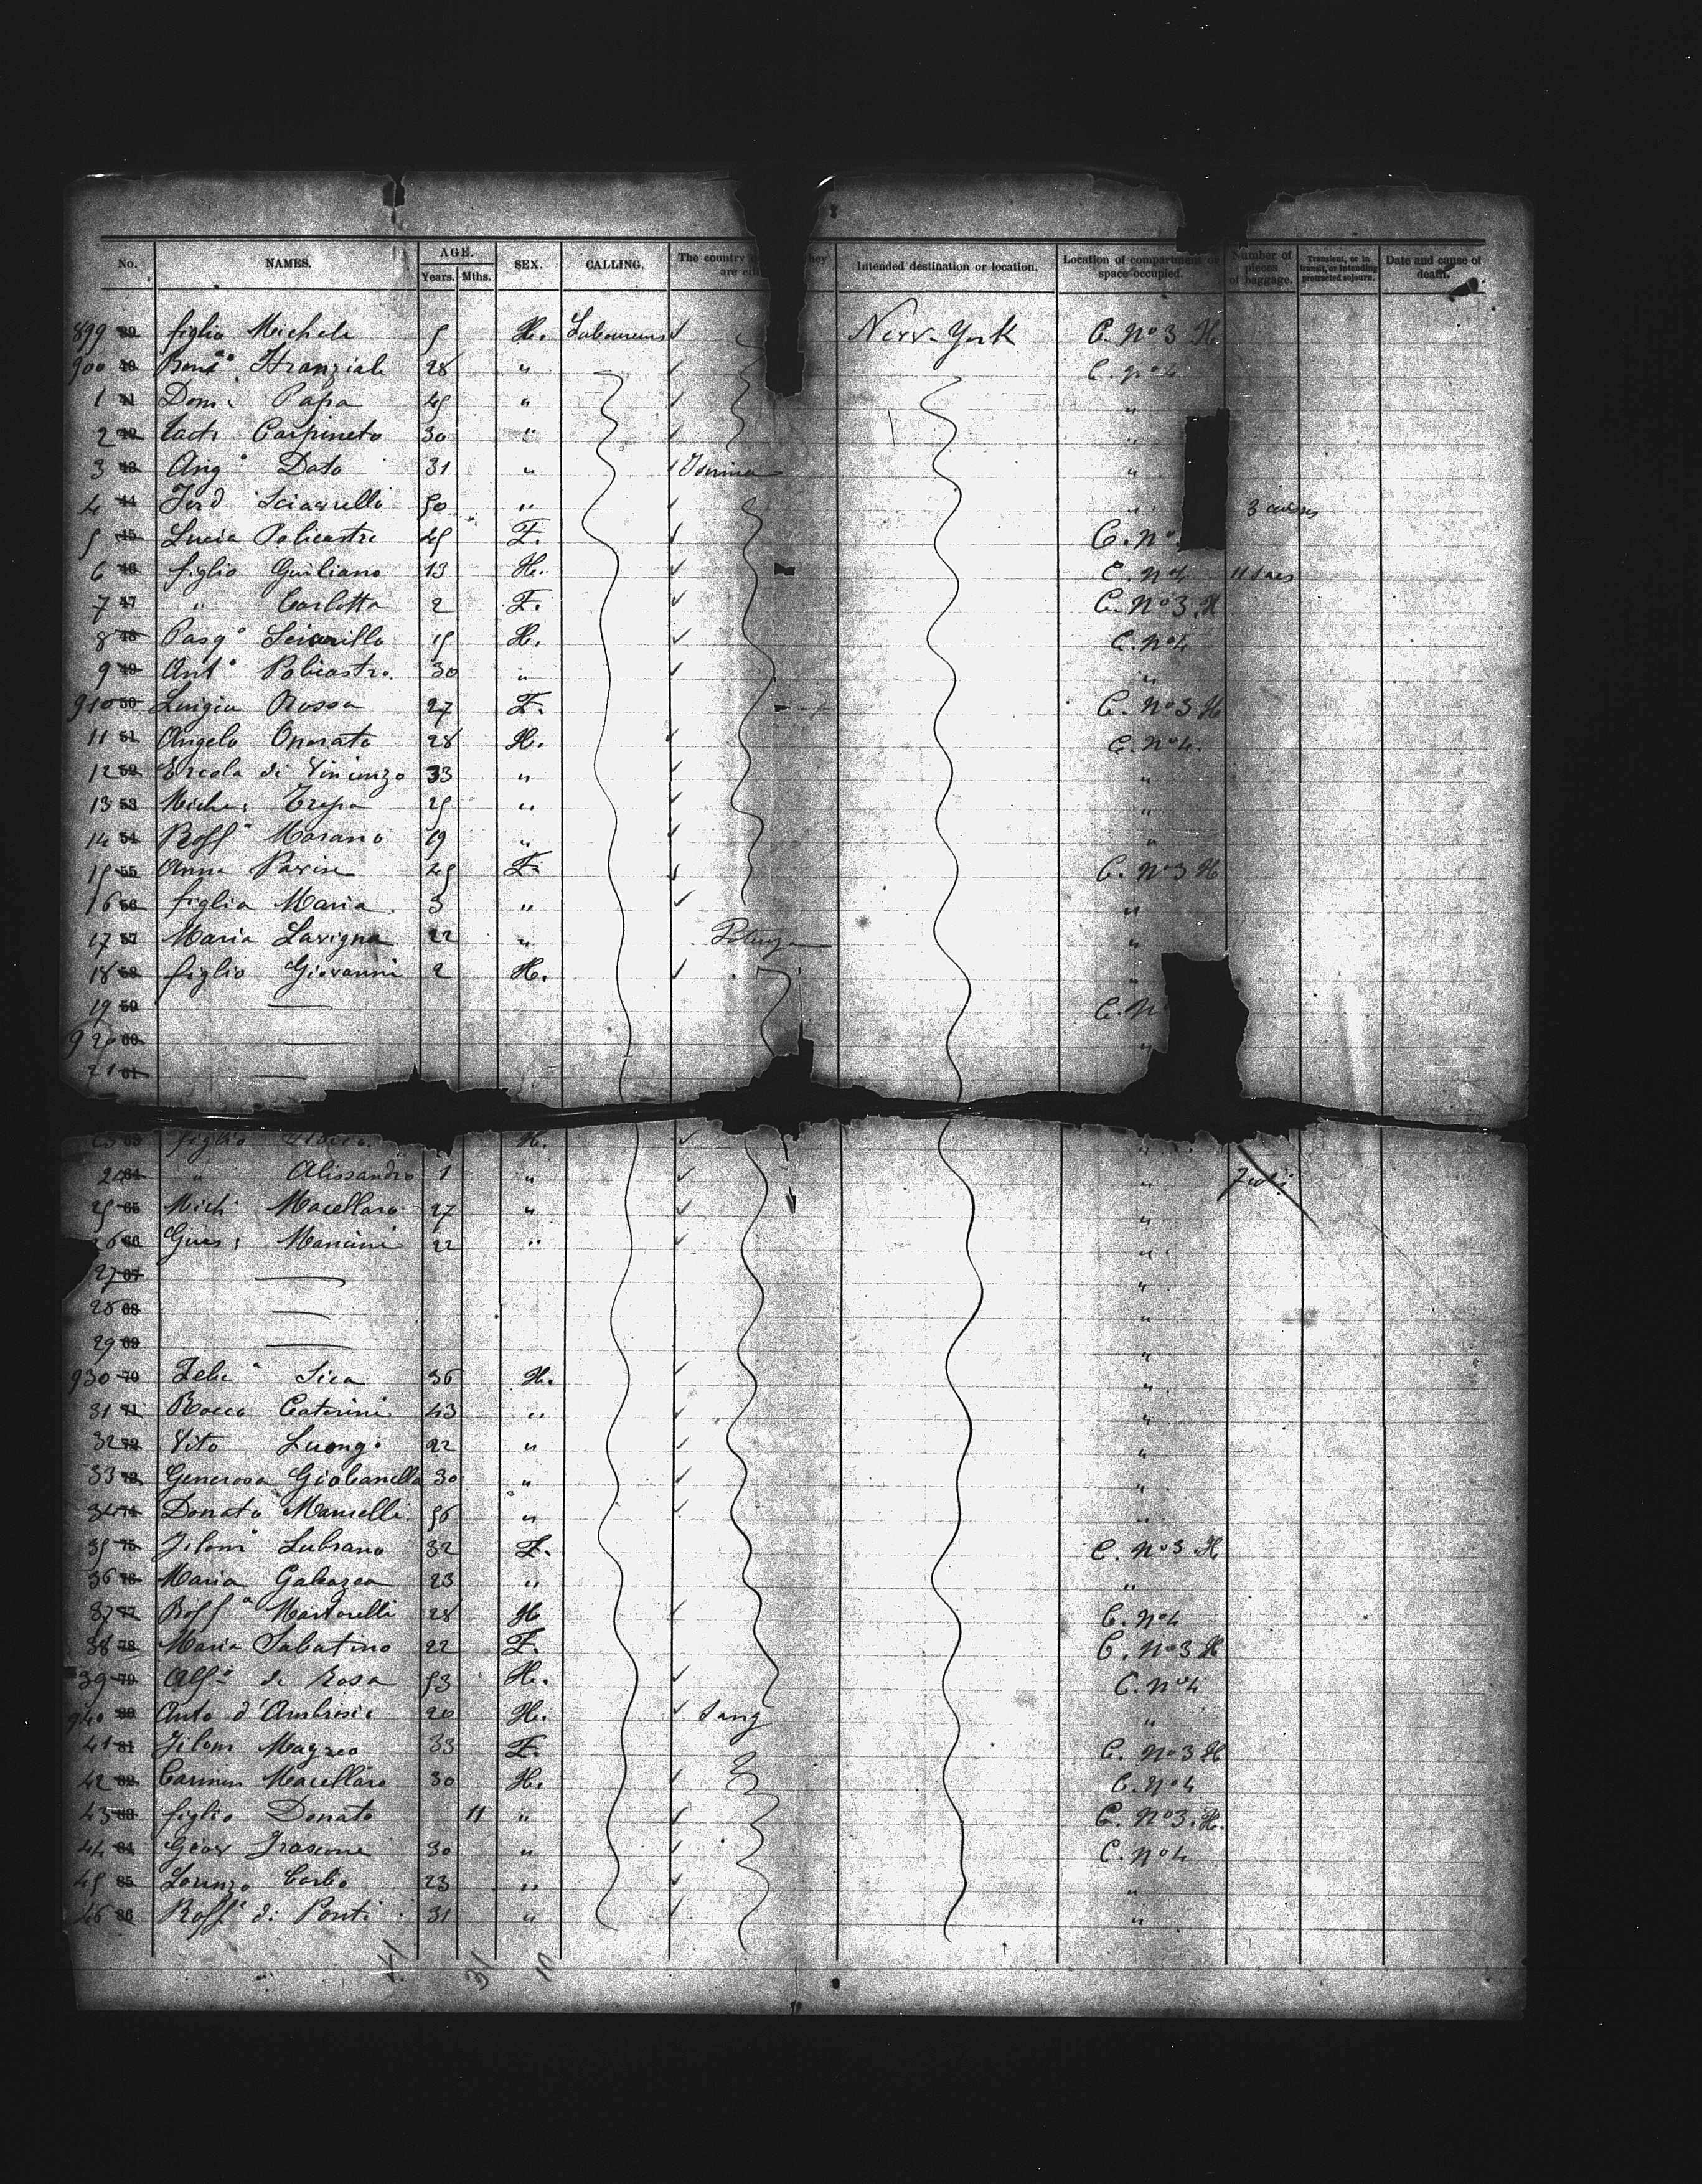 No. NAMES. AGE. Years. Mths. SEX. CALLING. The country they are Intended destination or location. Location of compartment or space occupied. Number of pieces of baggage. Transient, or in transit, or intending protracted sojourn. Date and cause of death.
899 39 figlio Michele 5 H. Labourers New-York C. No 3 H.
900 40 28 " C. No 4
1 41 Domi Papa 45 " "
2 42 Carpineto 30 " "
3 43 Ang° Dato 31 " "
4 44 Ferd Sciarrillo 50 " " 3
5 45 Lucia Policastro 45 F. C. No
6 46 figlio Guiliano 13 H. C. No 4 11 sacs
7 47 " Carlotta 2 F. C. No 3. H
8 48 Pasq° Sciarrillo 15 H. C. No 4
9 49 Ant° Policastro. 30 " "
910 50 Luigia Rossa 27 F. C. No 3 H
11 51 Angelo Onorato 28 H. C. No 4.
12 52 Ercole di Vincenzo 33 " "
13 53 Miche: 25 " "
14 54 Raff° Marano 19 " "
15 55 Anna 25 F. C. No 3. H
16 56 figlia Maria 3 " "
17 57 Maria Lavigna 22 " Potenza "
18 58 figlio Giovanni 2 H. "
19 59 — C. N
920 60 — "
21 61 —
63 figlio H. "
24 64 " Alissandro 1 " "
25 65 Mich Macellaro 27 " "
26 66 Gius: Mancini 22 " "
27 67 — "
28 68 — "
29 69 — "
930 70 Felic° Sica 36 H. "
31 71 Rocco Caterini 43 " "
32 72 Vito Luongo 22 " "
33 73 Generosa 30 " "
34 74 Donato Mancelli 56 " "
35 75 Filom° Lubrano 32 F. C. No 3 H
36 76 Maria 23 " "
37 77 Raff° Martorelli 28 H C. No 4
38 78 Maria Sabatino 22 F. C. No 3 H
39 79 Alf° de Rosa 53 H. C. No 4
940 80 Anto d'Ambrosio 20 H. "
41 81 Filom Mazzeo 33 F. C. No 3 H
42 82 Carmin Macellaro 30 H. C. No 4
43 83 figlio Donato 11 " C. No 3. H.
44 84 Giov Frascone 30 " C. No 4
45 85 Lorenzo Carbo 23 " "
46 86 Raff° di Ponti 31 " "